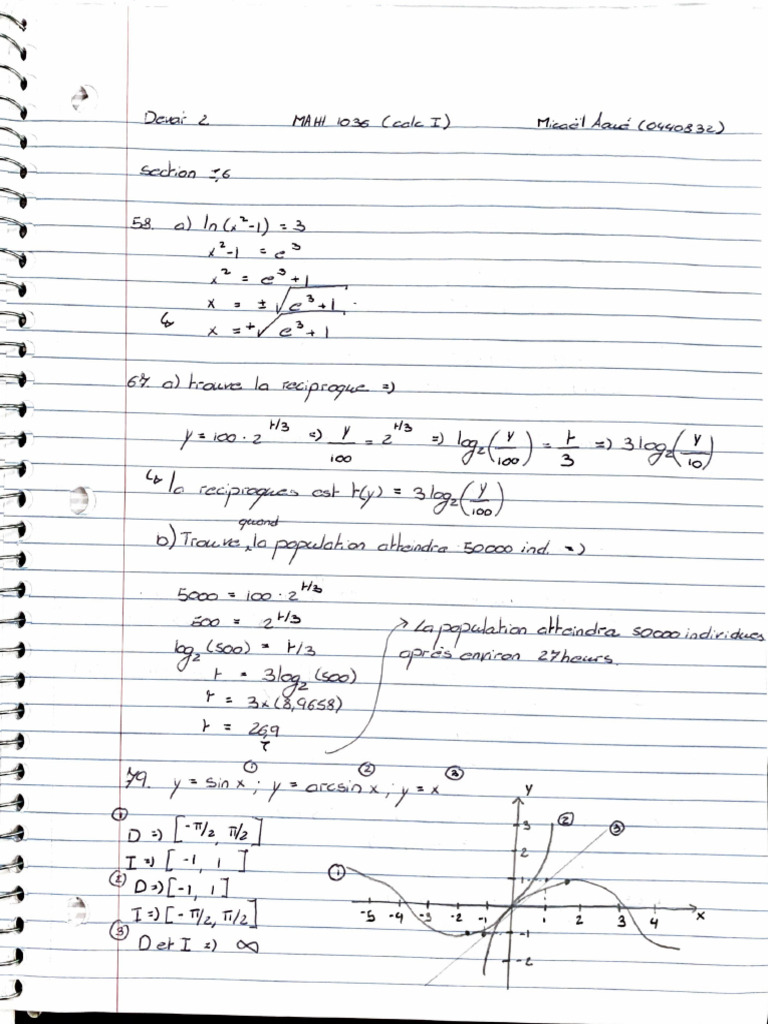 Devoir 2 MAHI 1036 (calc I) Micaël Aaué (0440832)
section 1,6
58. a) ln(x²-1) = 3
x²-1 = e³
x² = e³+1
x = ±√(e³+1).
↳ x = ±√(e³+1)
67. a) trouve la reciproque =>
y = 100·2^(t/3) => y/100 = 2^(t/3) => log₂(y/100) = t/3 => 3log₂(y/10)
↳ la reciproques est t(y) = 3log₂(y/100)
quand
b) Trouve, la population atteindra 50000 ind. =>
5000 = 100·2^(t/3)
500 = 2^(t/3)
log₂(500) = t/3
t = 3log₂(500)
t = 3×(8,9658)
t = 26,9
→ La population atteindra 50000 individues
après environ 27 heurs.
① ② ③
79. y = sin x ; y = arcsin x ; y = x
① D => [-π/2, π/2]
I => [-1, 1]
② D => [-1, 1]
I => [-π/2, π/2]
③ D et I => ∞
y
3 ② ③
2
① 1
-5 -4 -3 -2 -1 1 2 3 4 x
-1
-2